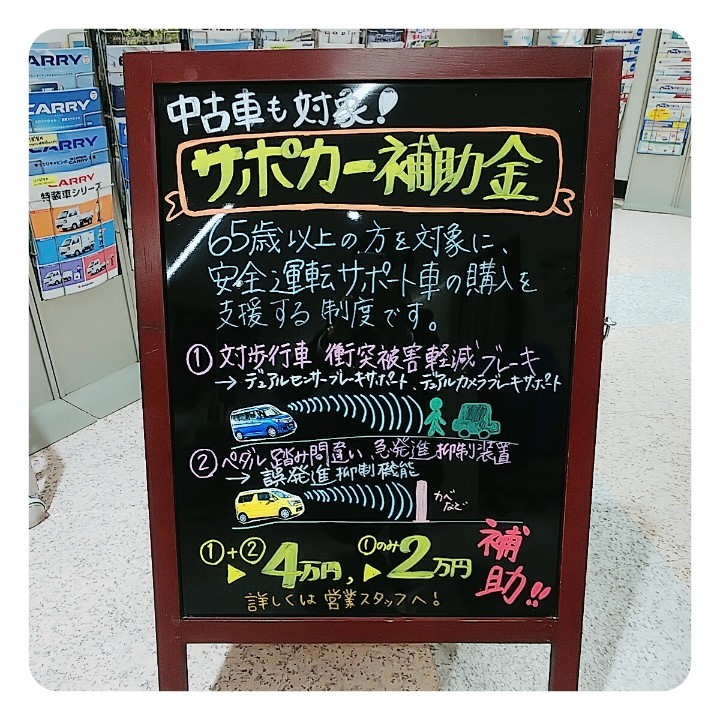 中古車も対象!
サポカー補助金
65歳以上の方を対象に、
安全運転サポート車の購入を
支援する制度です。
① 対歩行車 衝突被害軽減ブレーキ
→ デュアルセンサーブレーキサポート、デュアルカメラブレーキサポート
② ペダル踏み間違い 急発進抑制装置
→ 誤発進抑制機能
かべなど
①+② ▶ 4万円, ①のみ ▶ 2万円 補助!!
詳しくは営業スタッフへ!
CARRY
CARRY
CARRY
CARRY
特装車シリーズ